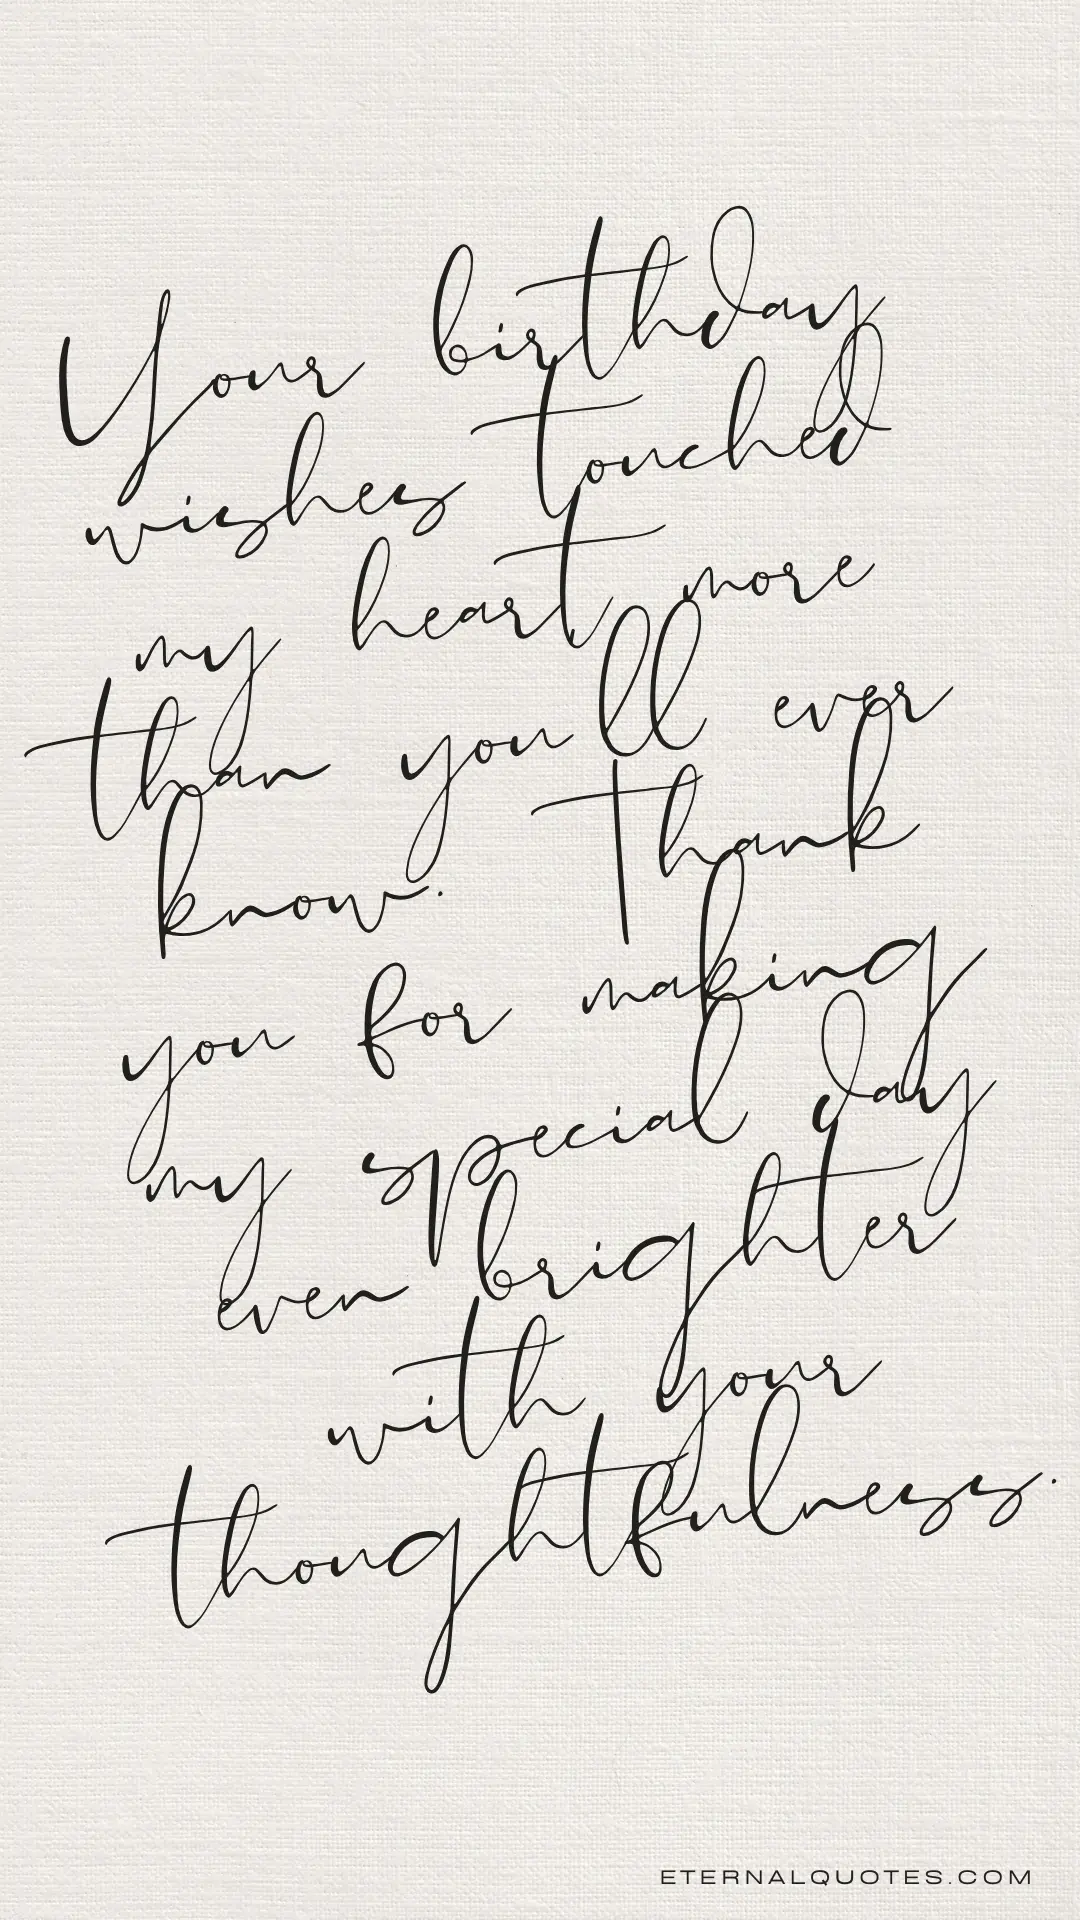 Your birthday
wishes touched
my heart more
than youll ever
know. Thank
you for making
my special day
even brighter
with your
thoughtfulness.
ETERNALQUOTES.COM